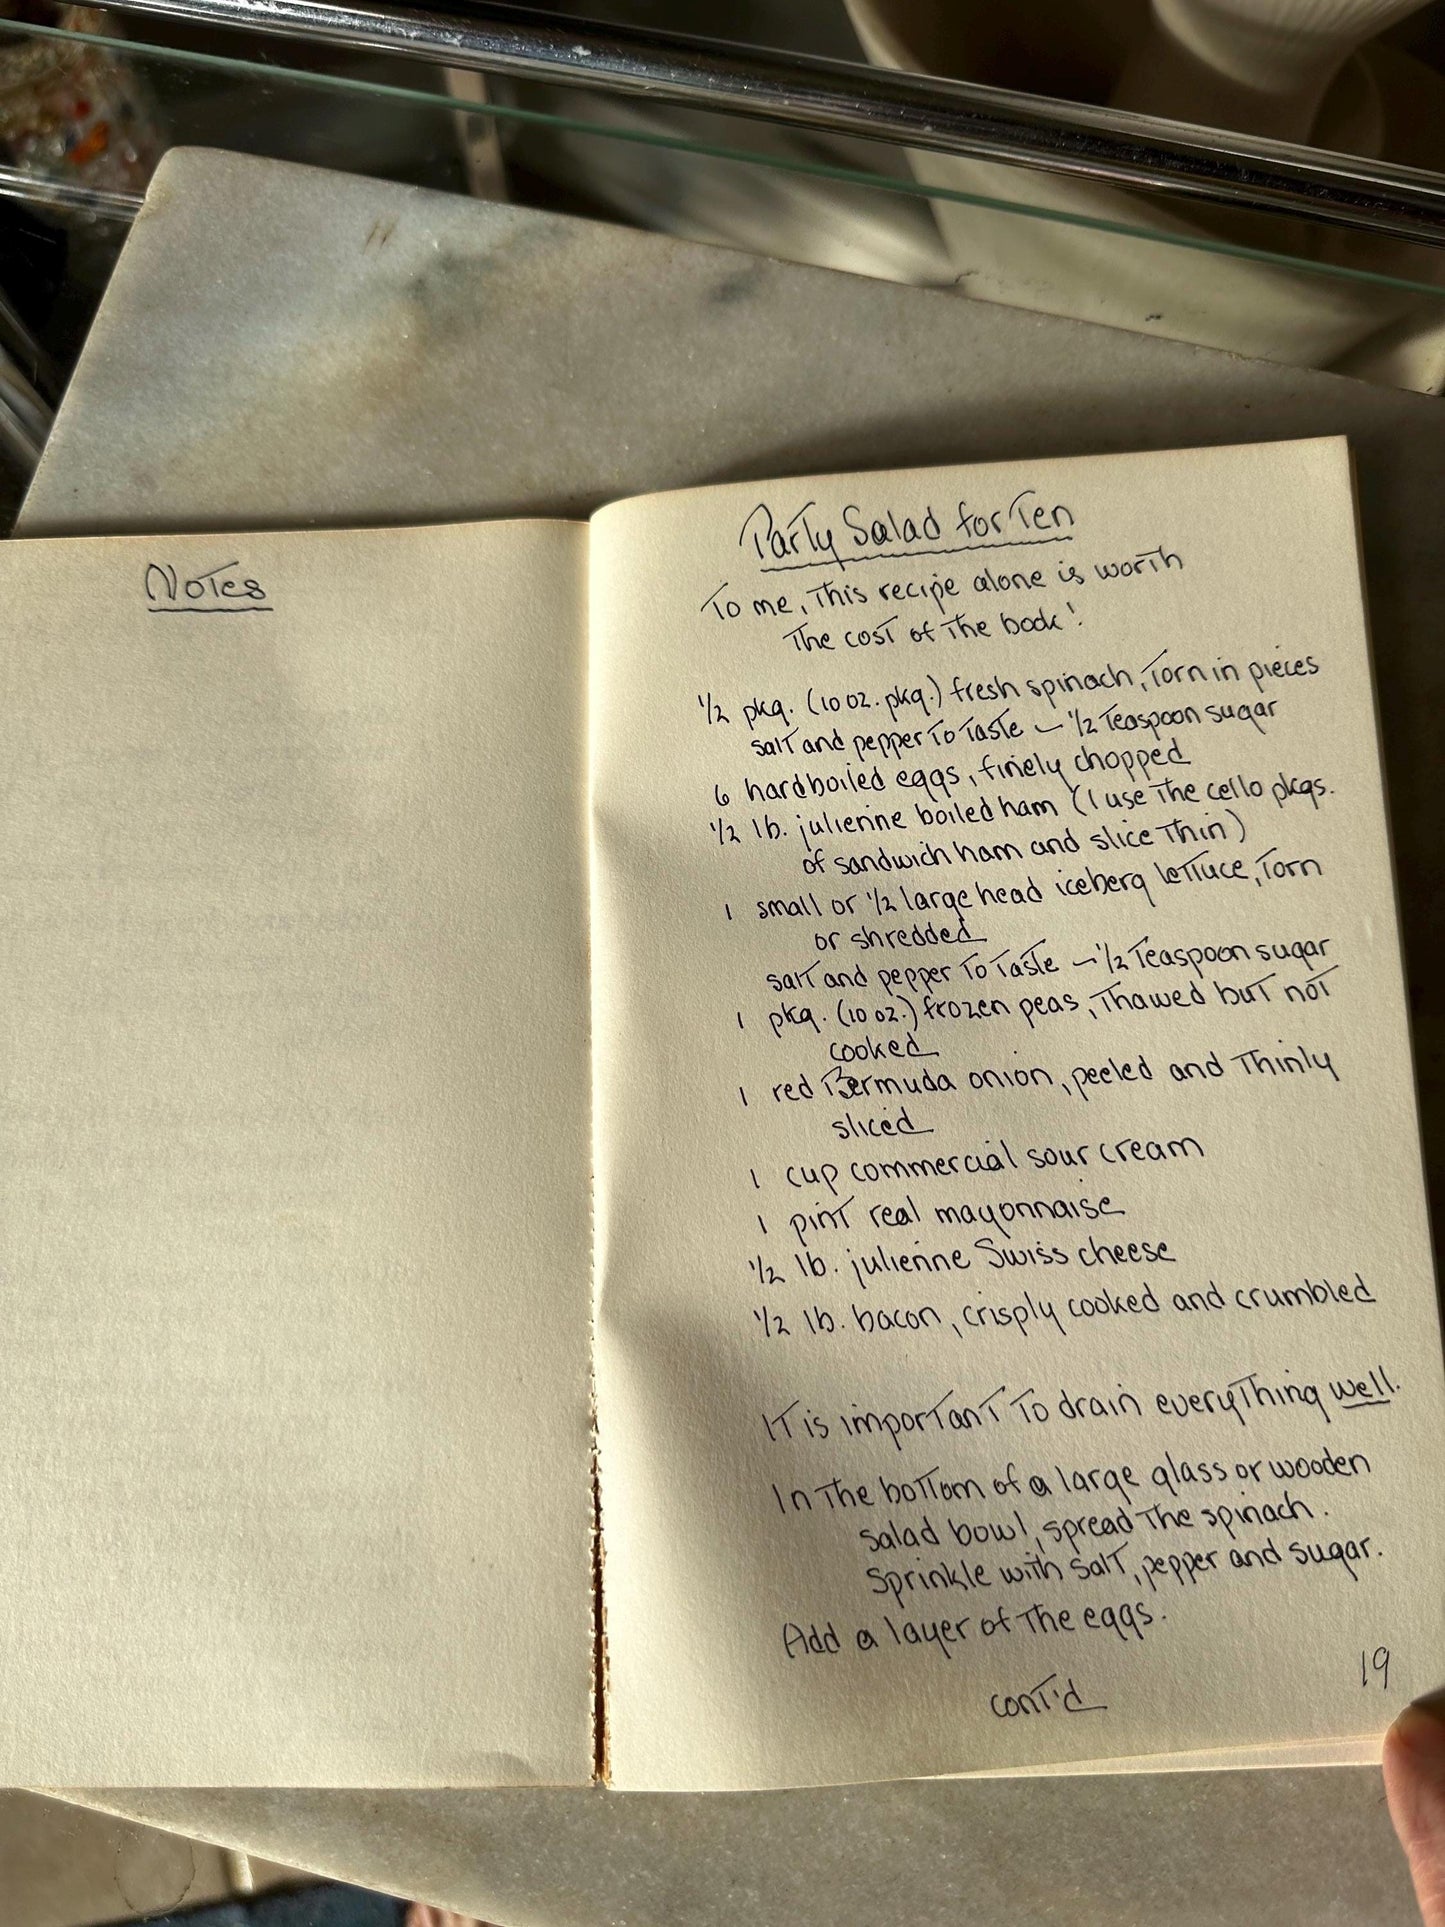 Notes
Party Salad for Ten
To me, this recipe alone is worth
the cost of the book!
1/2 pkg. (10 oz. pkg.) fresh spinach, torn in pieces
salt and pepper to taste – 1/2 teaspoon sugar
6 hardboiled eggs, finely chopped
1/2 lb. julienne boiled ham (I use the cello pkgs.
of sandwich ham and slice thin)
1 small or 1/2 large head iceberg lettuce, torn
or shredded
salt and pepper to taste – 1/2 teaspoon sugar
1 pkg. (10 oz.) frozen peas, thawed but not
cooked
1 red Bermuda onion, peeled and thinly
sliced
1 cup commercial sour cream
1 pint real mayonnaise
1/2 lb. julienne Swiss cheese
1/2 lb. bacon, crisply cooked and crumbled
It is important to drain everything well.
In the bottom of a large glass or wooden
salad bowl, spread the spinach.
Sprinkle with salt, pepper and sugar.
Add a layer of the eggs.
cont'd
19